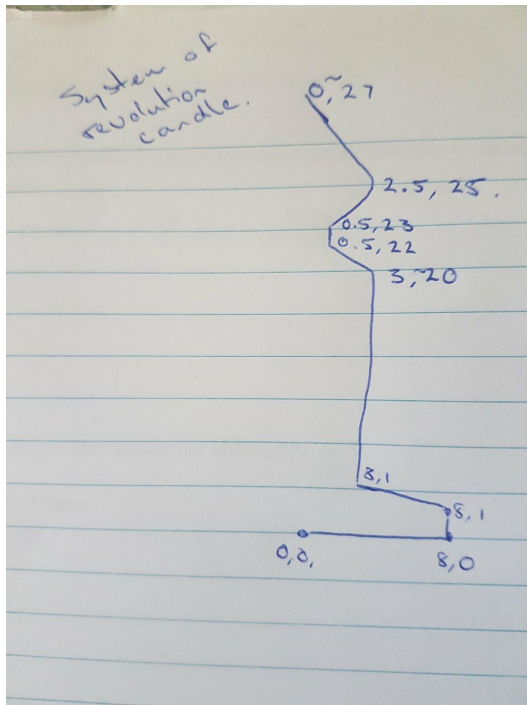 System of
revolution
candle.
0,27
2.5, 25.
0.5,23
0.5,22
3,20
3,1
8,1
0,0,
8,0